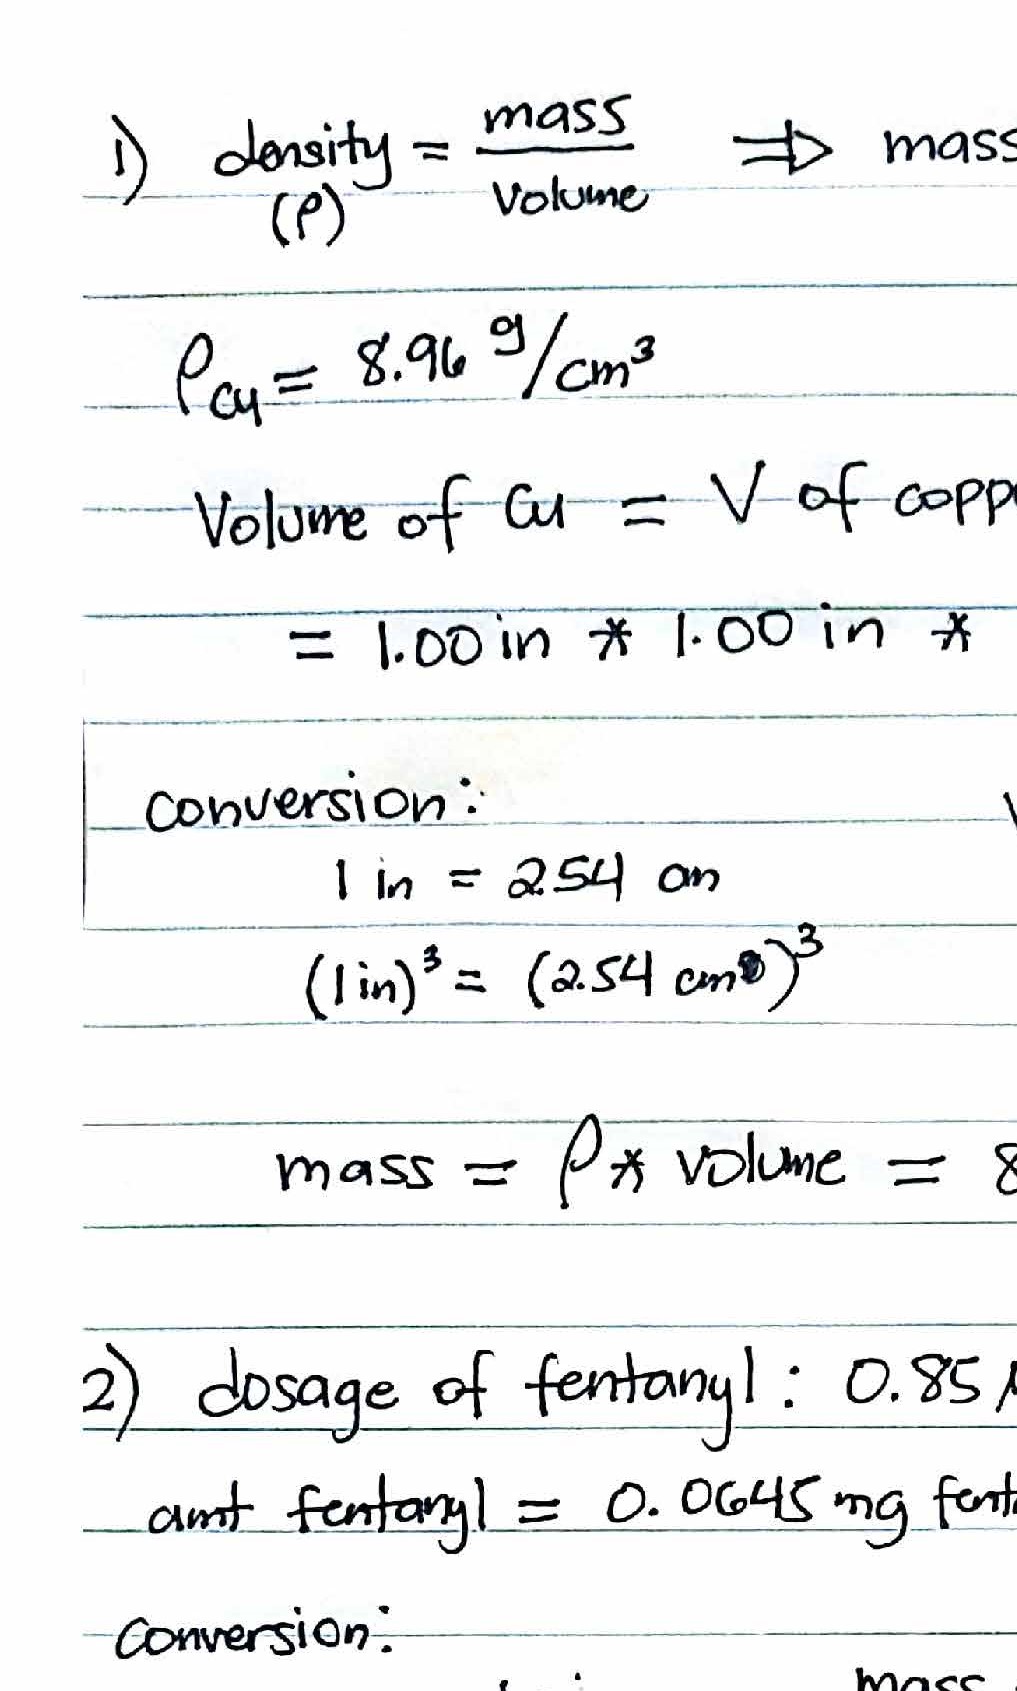 1) density = mass / Volume ⇒ mass
(ρ)
ρCu = 8.96 g/cm³
Volume of Cu = V of copp
= 1.00 in * 1.00 in *
conversion:
1 in = 2.54 cm
(1 in)³ = (2.54 cm)³
mass = ρ * volume = 8
2) dosage of fentanyl : 0.85 μ
amt fentanyl = 0.0645 mg fent
Conversion:
mass